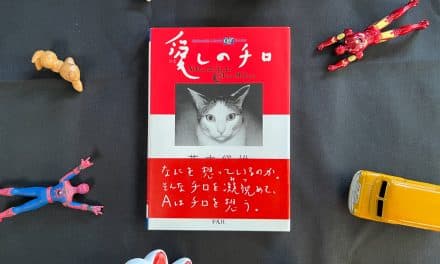 愛しのチロ
なにを想っているのか、
そんなチロを凝視めて、
Aはチロを想う。
平凡社